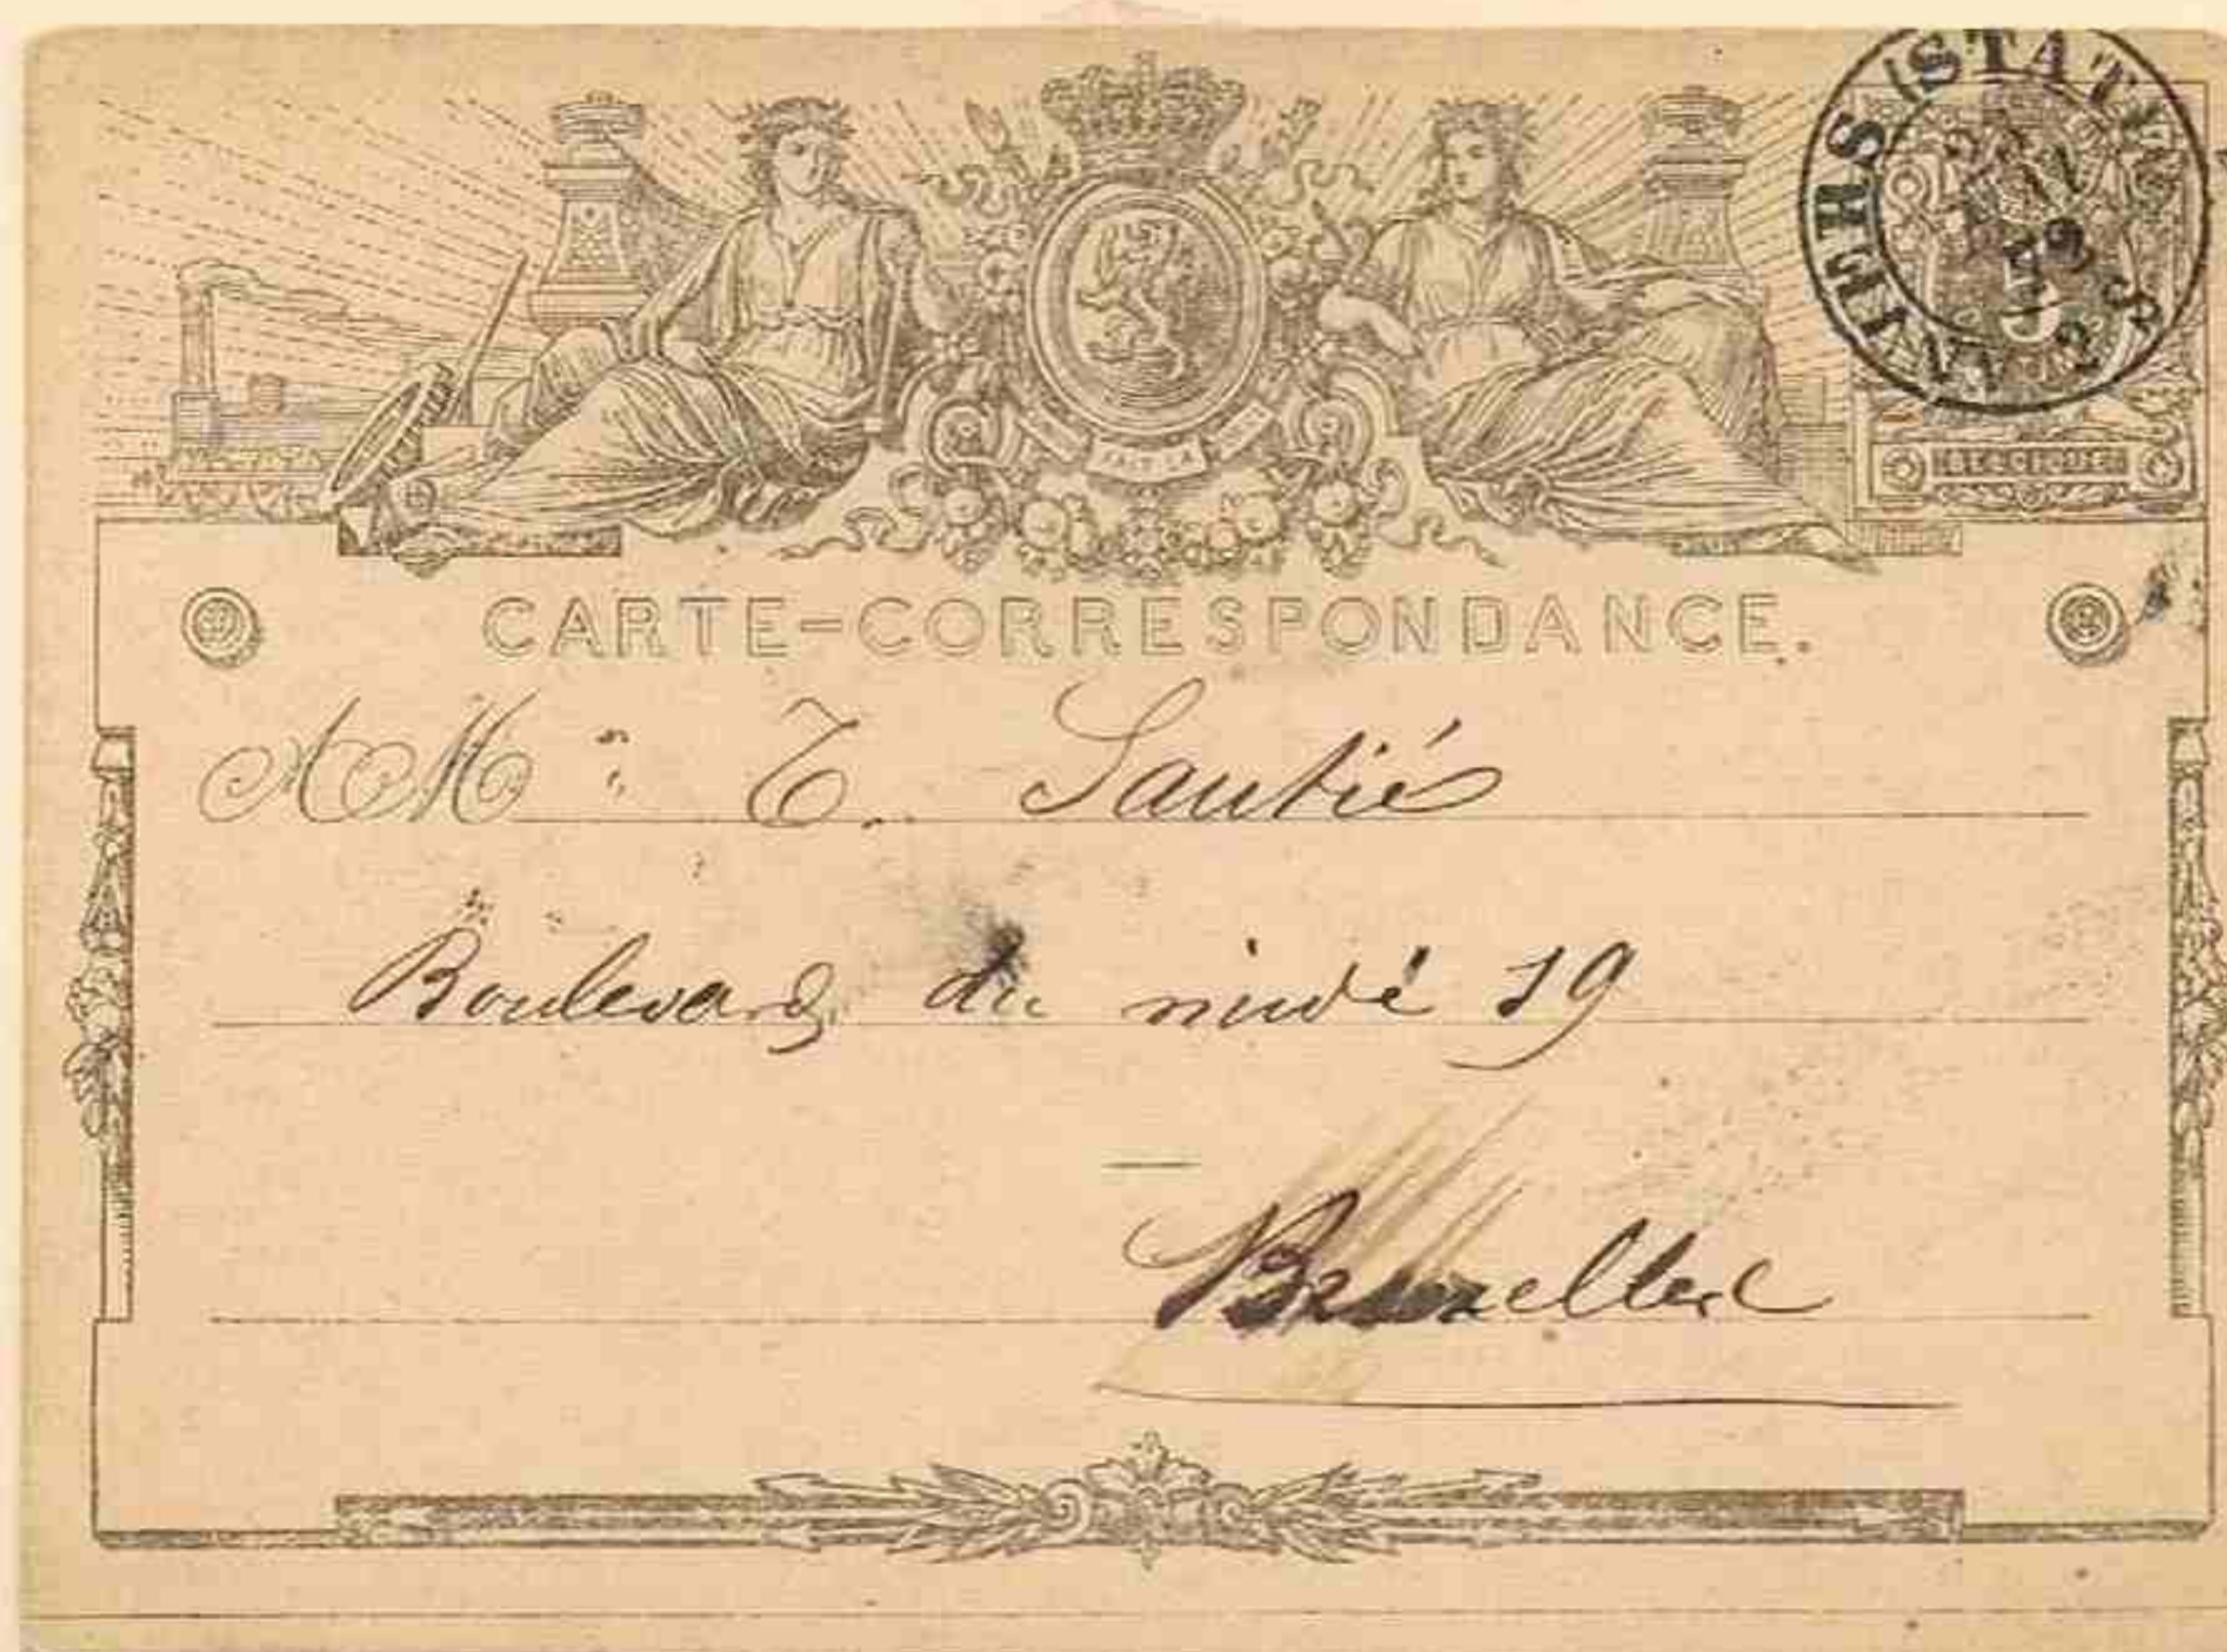 ANVERS (STATI
FAIT LA
CARTE-CORRESPONDANCE.
A M : T. Sautié
Boulevard du midi 19
Bruxelles